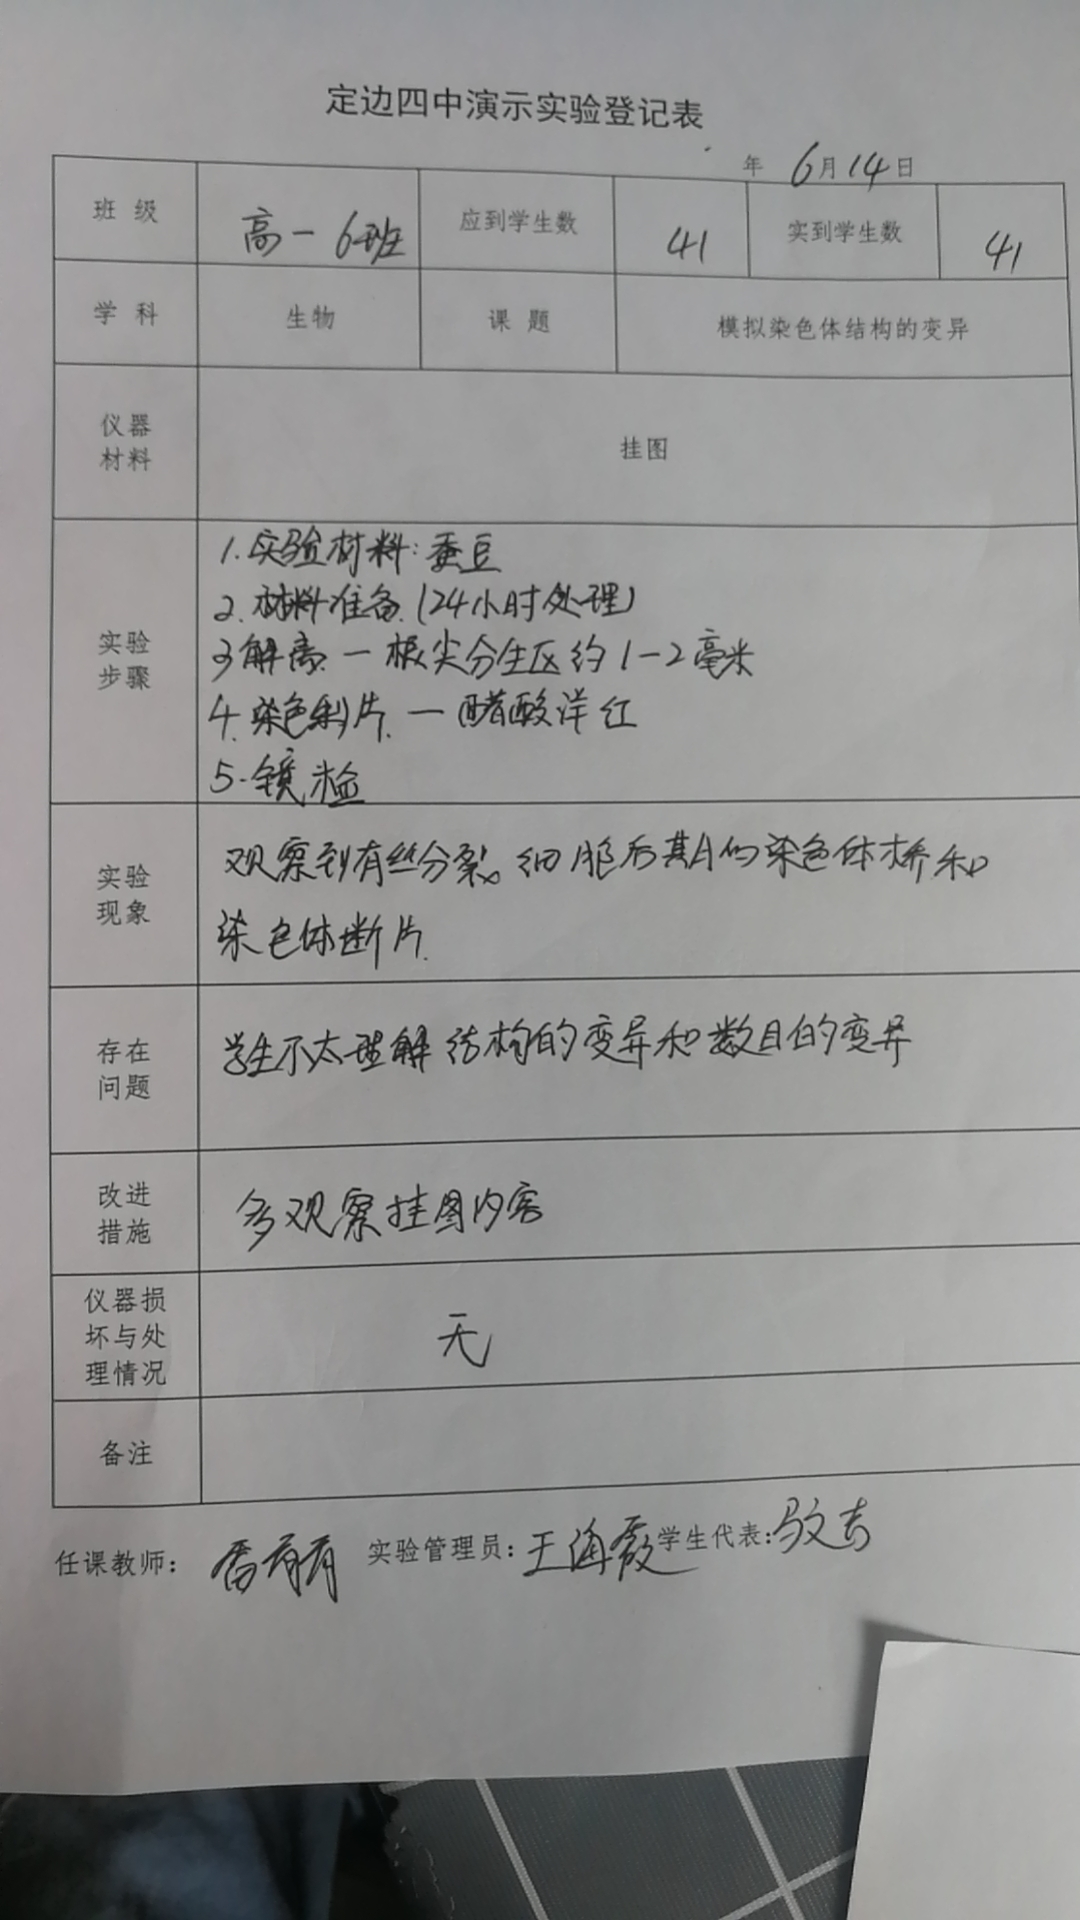 定边四中演示实验登记表
年 6月14日
班 级 高一6班 应到学生数 41 实到学生数 41
学 科 生物 课 题 模拟染色体结构的变异
仪器
材料
挂图
实验
步骤
1.实验材料:蚕豆
2.材料准备(24小时处理)
3解离 — 根尖分生区约1-2毫米
4.染色制片 — 醋酸洋红
5.镜检
实验
现象
观察到有丝分裂。细胞后期的染色体桥和
染色体断片.
存在
问题
学生不太理解结构的变异和数目的变异
改进
措施
多观察挂图内容
仪器损
坏与处
理情况
无
备注
任课教师: 实验管理员:王海霞 学生代表: